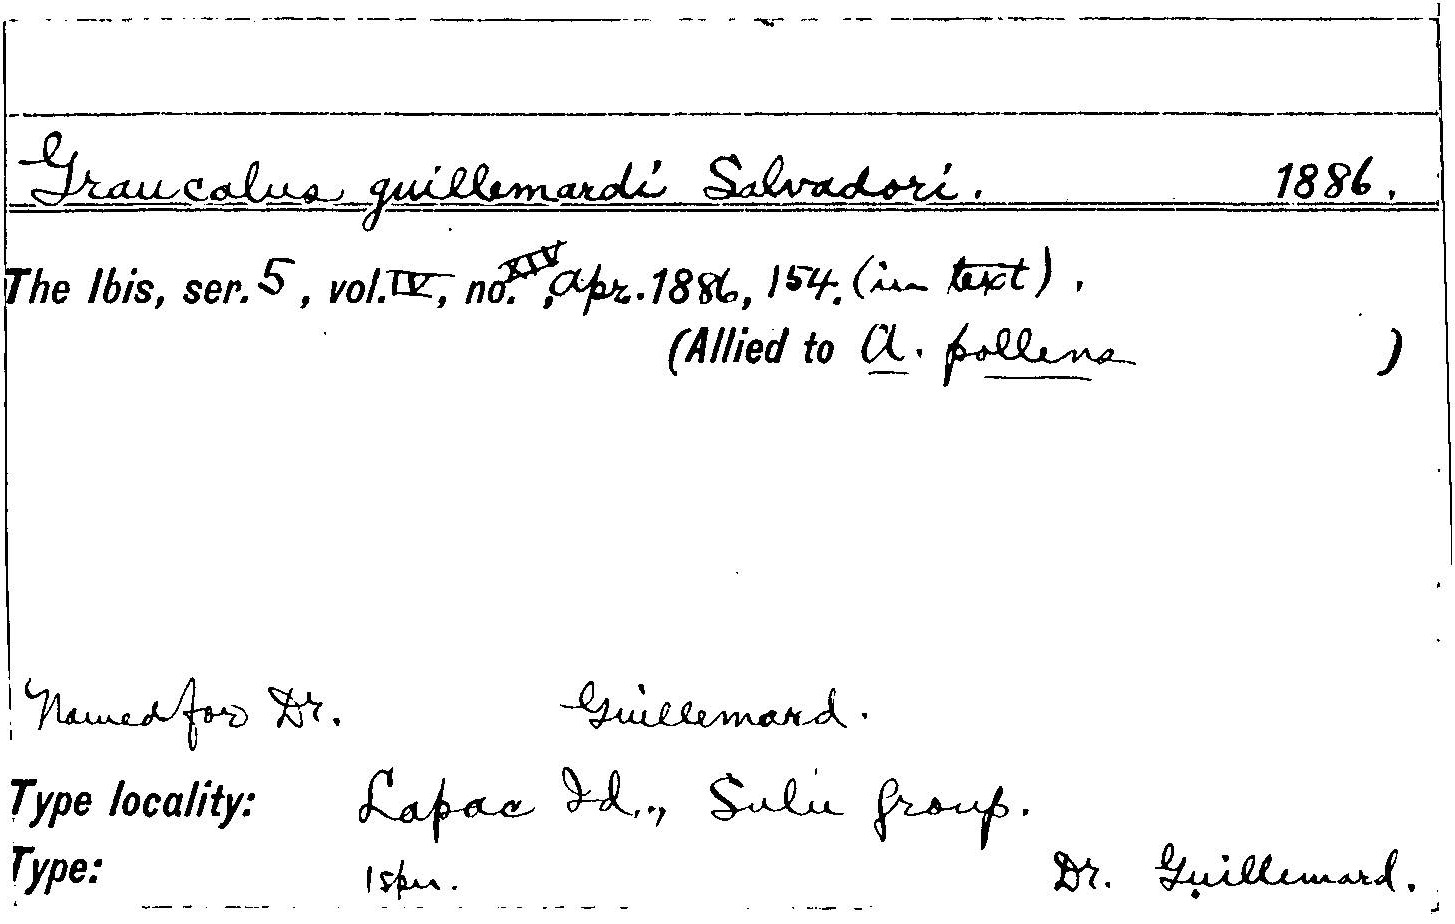 Graucalus guillemardi Salvadori. 1886.
The Ibis, ser. 5, vol. IV, no. XIV, Apr. 1886, 154. (in text).
(Allied to A. pollens )
Named for Dr. Guillemard.
Type locality: Lapac Id., Sulu group.
Type: 1 spm. Dr. Guillemard.